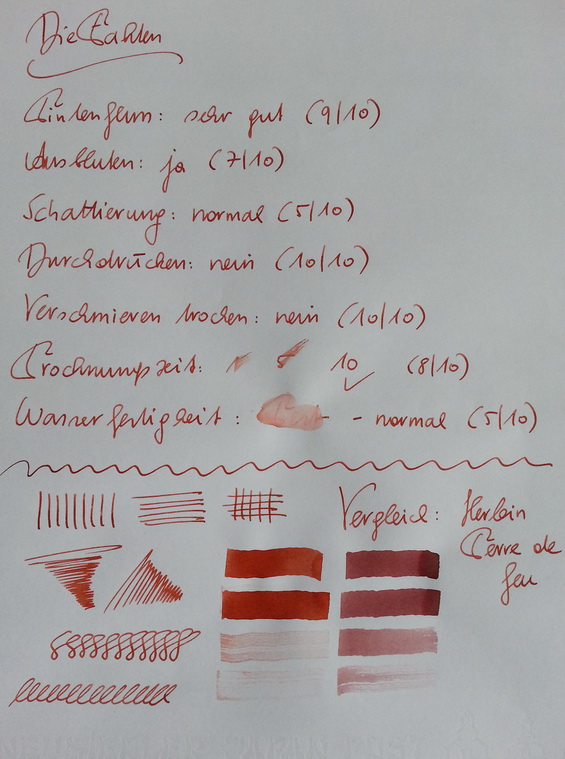 Die Zahlen
Tintenfluss: sehr gut (9/10)
Ausbluten: ja (7/10)
Schattierung: normal (5/10)
Durchdrücken: nein (10/10)
Verschmieren trocken: nein (10/10)
Trocknungszeit: 10 ✓ (8/10)
Wasserfestigkeit: - normal (5/10)
Vergleich: Herbin
Terre de
feu